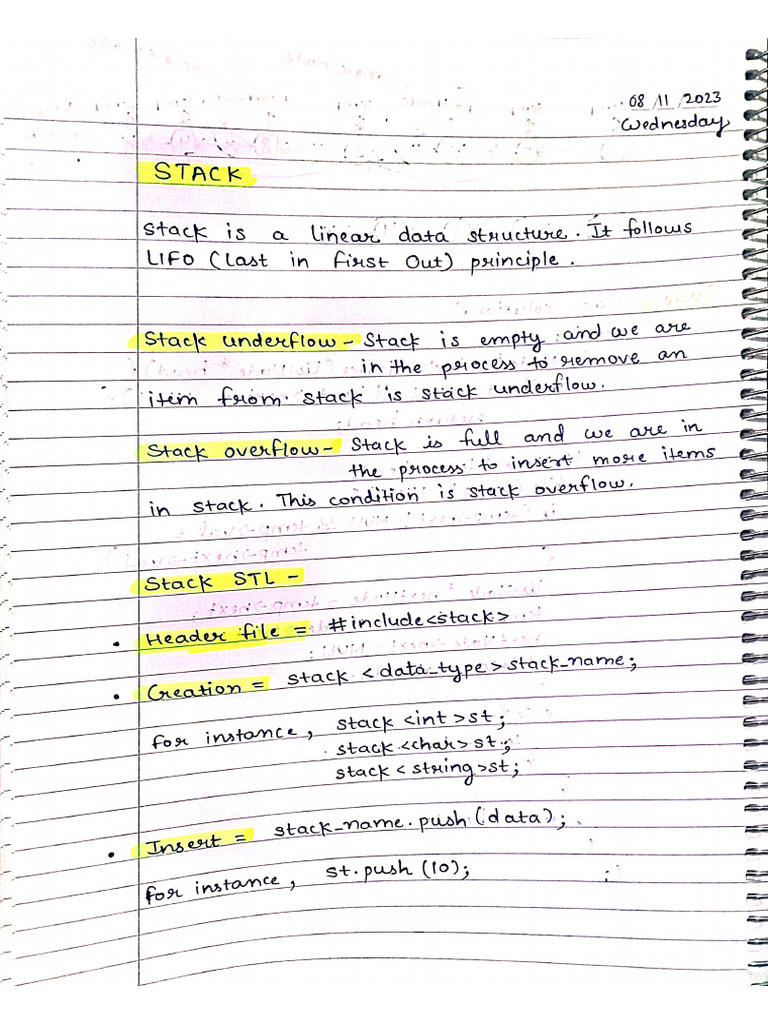 08/11/2023
Wednesday
STACK
Stack is a linear data structure. It follows
LIFO (Last in First Out) principle.
Stack underflow - Stack is empty and we are
in the process to remove an
item from stack is stack underflow.
Stack overflow - Stack is full and we are in
the process to insert more items
in stack. This condition is stack overflow.
Stack STL -
• Header file = #include<stack>
• Creation = stack <data_type> stack_name;
for instance, stack <int> st;
stack <char> st;
stack <string> st;
• Insert = stack_name.push(data);
for instance, st.push(10);